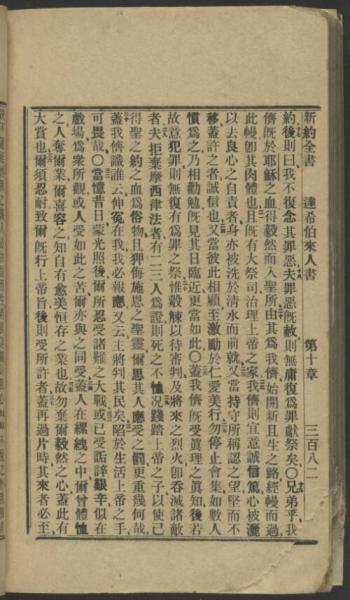 新約全書 達希伯來人書 第十章 三百八二
約後則曰我不復念其罪惡夫罪惡旣赦則無庸復爲罪獻祭矣〇兄弟乎我
儕旣於耶穌之血得毅然而入聖所由其爲我儕始開新且生之路經幔而過
此幔卽其肉體也且旣有大祭司治理上帝之家我儕則宜意誠信篤心被灑
以去良心之自責者身亦被洗於清水而前就又當持守所稱認之望堅而不
移蓋許之者誠信也又當彼此相顧至激勵於仁愛美行勿停止會集如數人
慣爲之乃相勸勉旣見其日臨近更當如此〇蓋我儕旣受眞理之眞知後若
故意犯罪則無復有爲罪之祭惟觳觫以待審判及將來之烈火卽呑滅諸敵
者夫拒棄摩西律法者有二三人爲證則死之不恤况踐踏上帝之子以使己
得聖之約之血爲俗物且狎侮施恩之聖靈爾思其人應受之罰更重幾何哉
蓋我儕識誰云伸冤在我我必報應又云主將判其民矣陷於生活上帝之手
可畏哉〇當憶昔日蒙光照後爾所忍受諸難之大戰或已受詬誶艱辛似在
戲場爲衆所觀或人受如此之苦爾亦與之同受蓋人在縲絏之中爾曾體恤
之人奪爾業爾喜容之知自有愈美恒存之業也故勿棄爾毅然之心蓋此有
大賞也爾須忍耐致爾旣行上帝旨後則受所許者蓋再過片時其來者必至